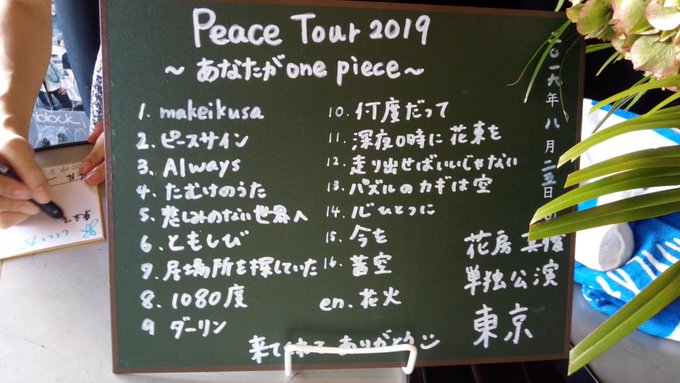 Peace Tour 2019
~あなたがone piece~
1. makeikusa
2. ピースサイン
3. Always
4. たむけのうた
5. 悲しみのない世界へ
6. ともしび
7. 居場所を探していた
8. 1080度
9 ダーリン
10. 何度だって
11. 深夜0時に花束を
12. 走り出せばいいじゃない
13. パズルのカギは空
14. 心ひとつに
15. 今を
16. 蒼空
en. 花火
来てくれて ありがとう
一九年 八月二五日
花房
単独公演
東京
block